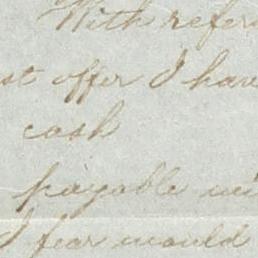 With refer
st offer I have
cash
payable wi
I fear would